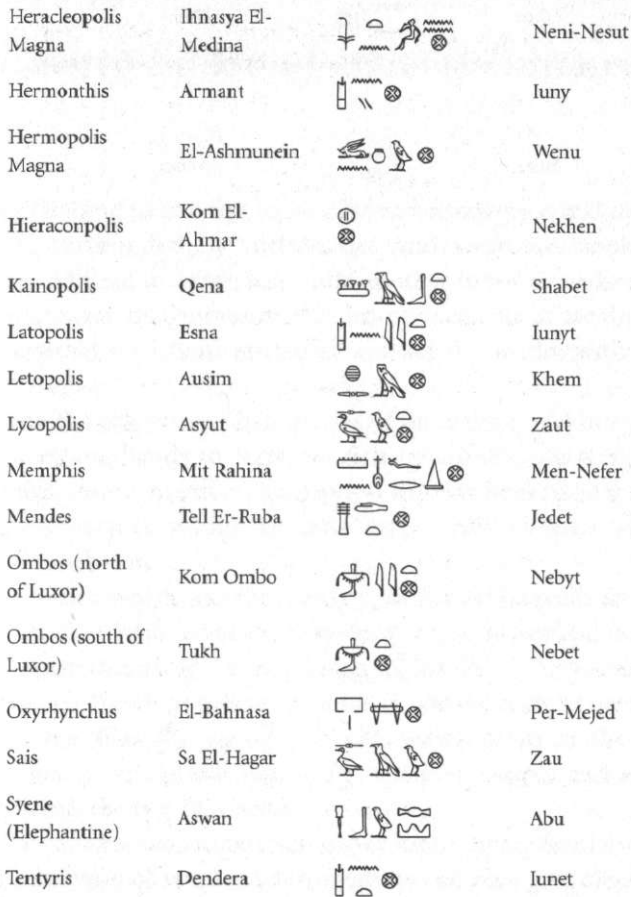 Heracleopolis Ihnasya El- Neni-Nesut
Magna Medina
Hermonthis Armant Iuny
Hermopolis
Magna El-Ashmunein Wenu
Hieraconpolis Kom El- Nekhen
Ahmar
Kainopolis Qena Shabet
Latopolis Esna Iunyt
Letopolis Ausim Khem
Lycopolis Asyut Zaut
Memphis Mit Rahina Men-Nefer
Mendes Tell Er-Ruba Jedet
Ombos (north
of Luxor) Kom Ombo Nebyt
Ombos (south of
Luxor) Tukh Nebet
Oxyrhynchus El-Bahnasa Per-Mejed
Sais Sa El-Hagar Zau
Syene
(Elephantine) Aswan Abu
Tentyris Dendera Iunet